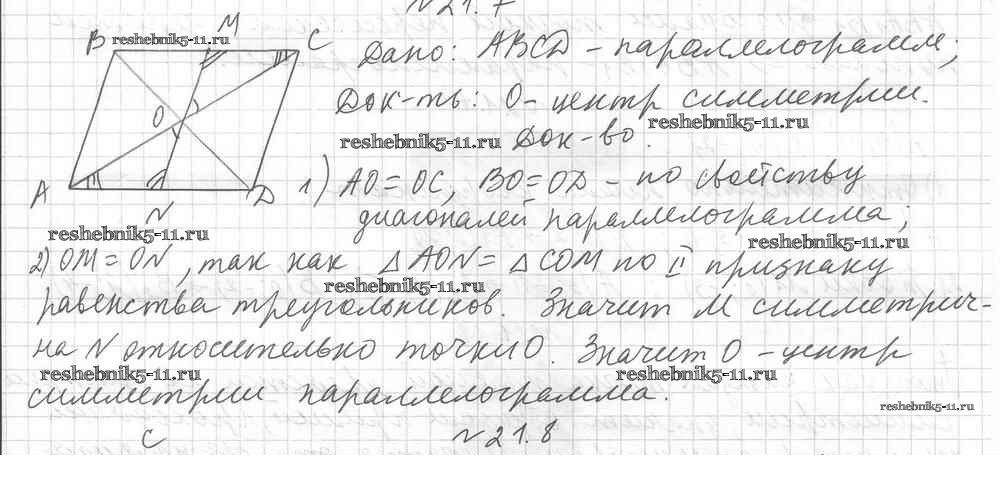 № 21.7
B M C
reshebnik5-11.ru
Дано: ABCD - параллелограмм;
O
Док-ть: O- центр симметрии.
reshebnik5-11.ru
reshebnik5-11.ru
Док-во.
A N D
1) AO = OC, BO = OD - по свойству
диагоналей параллелограмма;
reshebnik5-11.ru
reshebnik5-11.ru
2) OM = ON, так как △AON = △COM по II признаку
reshebnik5-11.ru
равенства треугольников. Значит M симметрич-
на N относительно точки O. Значит O - центр
reshebnik5-11.ru
reshebnik5-11.ru
симметрии параллелограмма.
reshebnik5-11.ru
C
№ 21.8